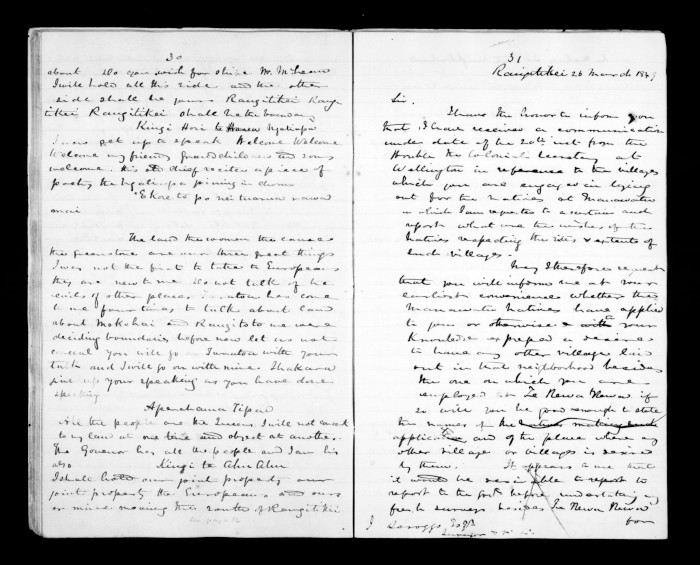 30
about Do you wish for strife Mr. McLean
I will hold all this side and the other
side shall be yours Rangitikei Rangi
tikei Rangitikei shall be the boundary
Kingi Hori te Ngatiapa
get up & speak Welcome Welcome
Welcome my friends Grandchildren and sons
welcome. His chief recites a piece of
poetry the Ngatiapa joining in chorus
"E Kore te po
The land the women the canoes
the greenstone are our three great things
I was not the first to take to Europeans
they are new to me Do not talk of the
evils of other places has come
to me four times to talk about land
about Mokohai and Rangitoto we were
deciding boundaries before now let us not
conceal you will go with your
talk and I will go on with mine
give up your speaking as you have done
speaking
Aperahama Tipae
All the people are the Queens I will not
to my law at one time and object at another.
The Governor has all the people and I am his
also Kingi te Ahu Ahu
I shall hold our joint property our
joint property the Europeans and ours
or mine meaning the south of Rangitikei
31
Rangitikei 26 March 1849
Sir,
I have the honor to inform you
that I have received a communication
under date of the 20th inst from the
Honble the Colonial Secretary at
Wellington in reference to the villages
which you are engaged in laying
out for the natives at Manawatu
in which I am requested to ascertain and
report what are the wishes of the
Natives respecting the sites & extents of
such villages.
May I therefore request
that you will inform me at your
earliest convenience whether the
Manawatu Natives have applied
to you or otherwise & with your
knowledge expressed a desire
to have any other village laid
out in that neighborhood besides
the one on which you are
employed at Te Rewa Rewa if
so will you be good enough to state
the names of the
application and of the place where any
other village or villages is desired
by them. It appears to me that
it would be desirable to report to
report to the Govt before undertaking any
fresh surveys besides Te Rewa Rewa
for
J Scroggs Esqre
Surveyor